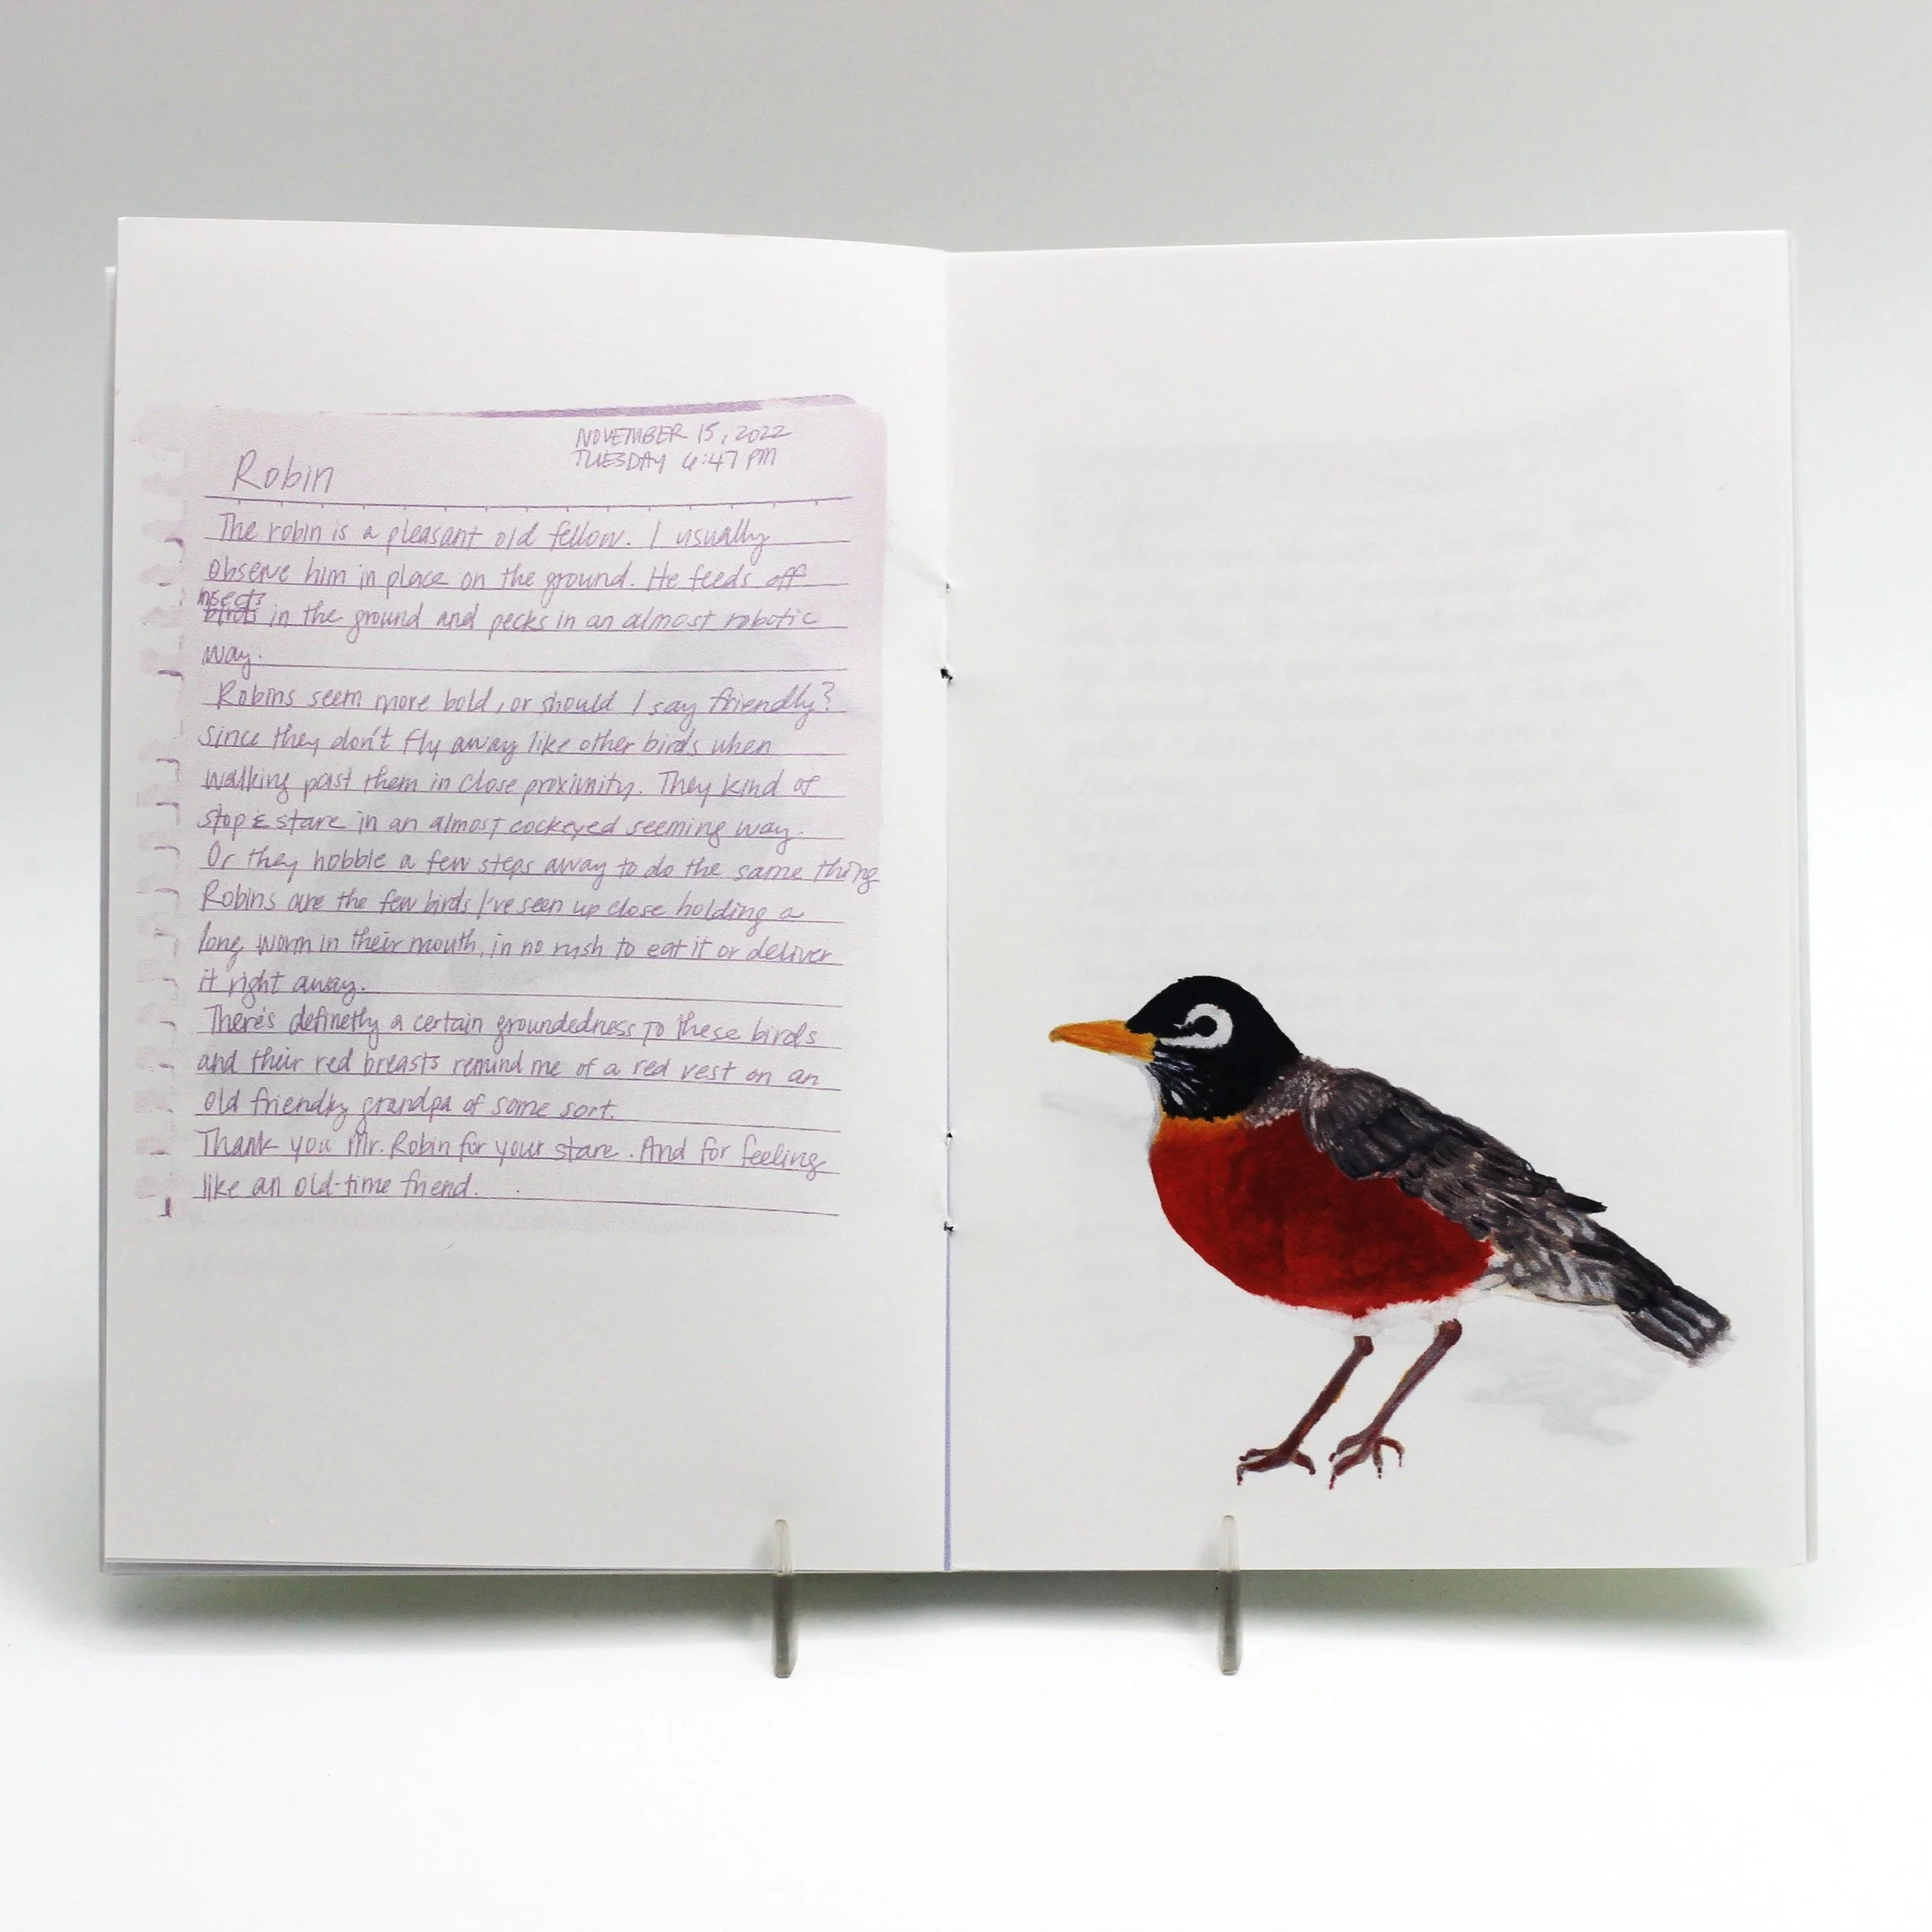 NOVEMBER 15, 2022
TUESDAY 6:47 PM
Robin
The robin is a pleasant old fellow. I usually
observe him in place on the ground. He feeds off
insects
birds in the ground and pecks in an almost robotic
way.
Robins seem more bold, or should I say friendly?
since they don't fly away like other birds when
walking past them in close proximity. They kind of
stop & stare in an almost cockeyed seeming way.
Or they hobble a few steps away to do the same thing
Robins are the few birds I've seen up close holding a
long worm in their mouth, in no rush to eat it or deliver
it right away.
There's definetly a certain groundedness to these birds
and their red breasts remind me of a red vest on an
old friendly grandpa of some sort.
Thank you Mr. Robin for your stare. And for feeling
like an old-time friend.